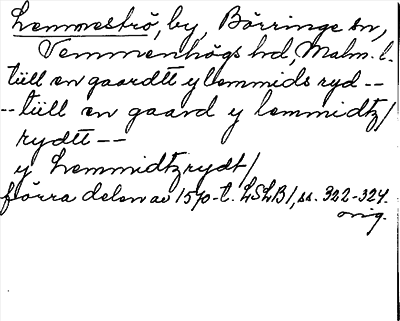 Lemmeströ, by, Börringe sn,
Vemmenhögs hd, Malm. l.
tüll en gaardtt y lemmids ryd --
-- tüll en gaard y lemmidtz/
rydtt --
y Lemmidtzrydt/
förra delen av 1570-t. LSLB1, ss. 322-324.
orig.